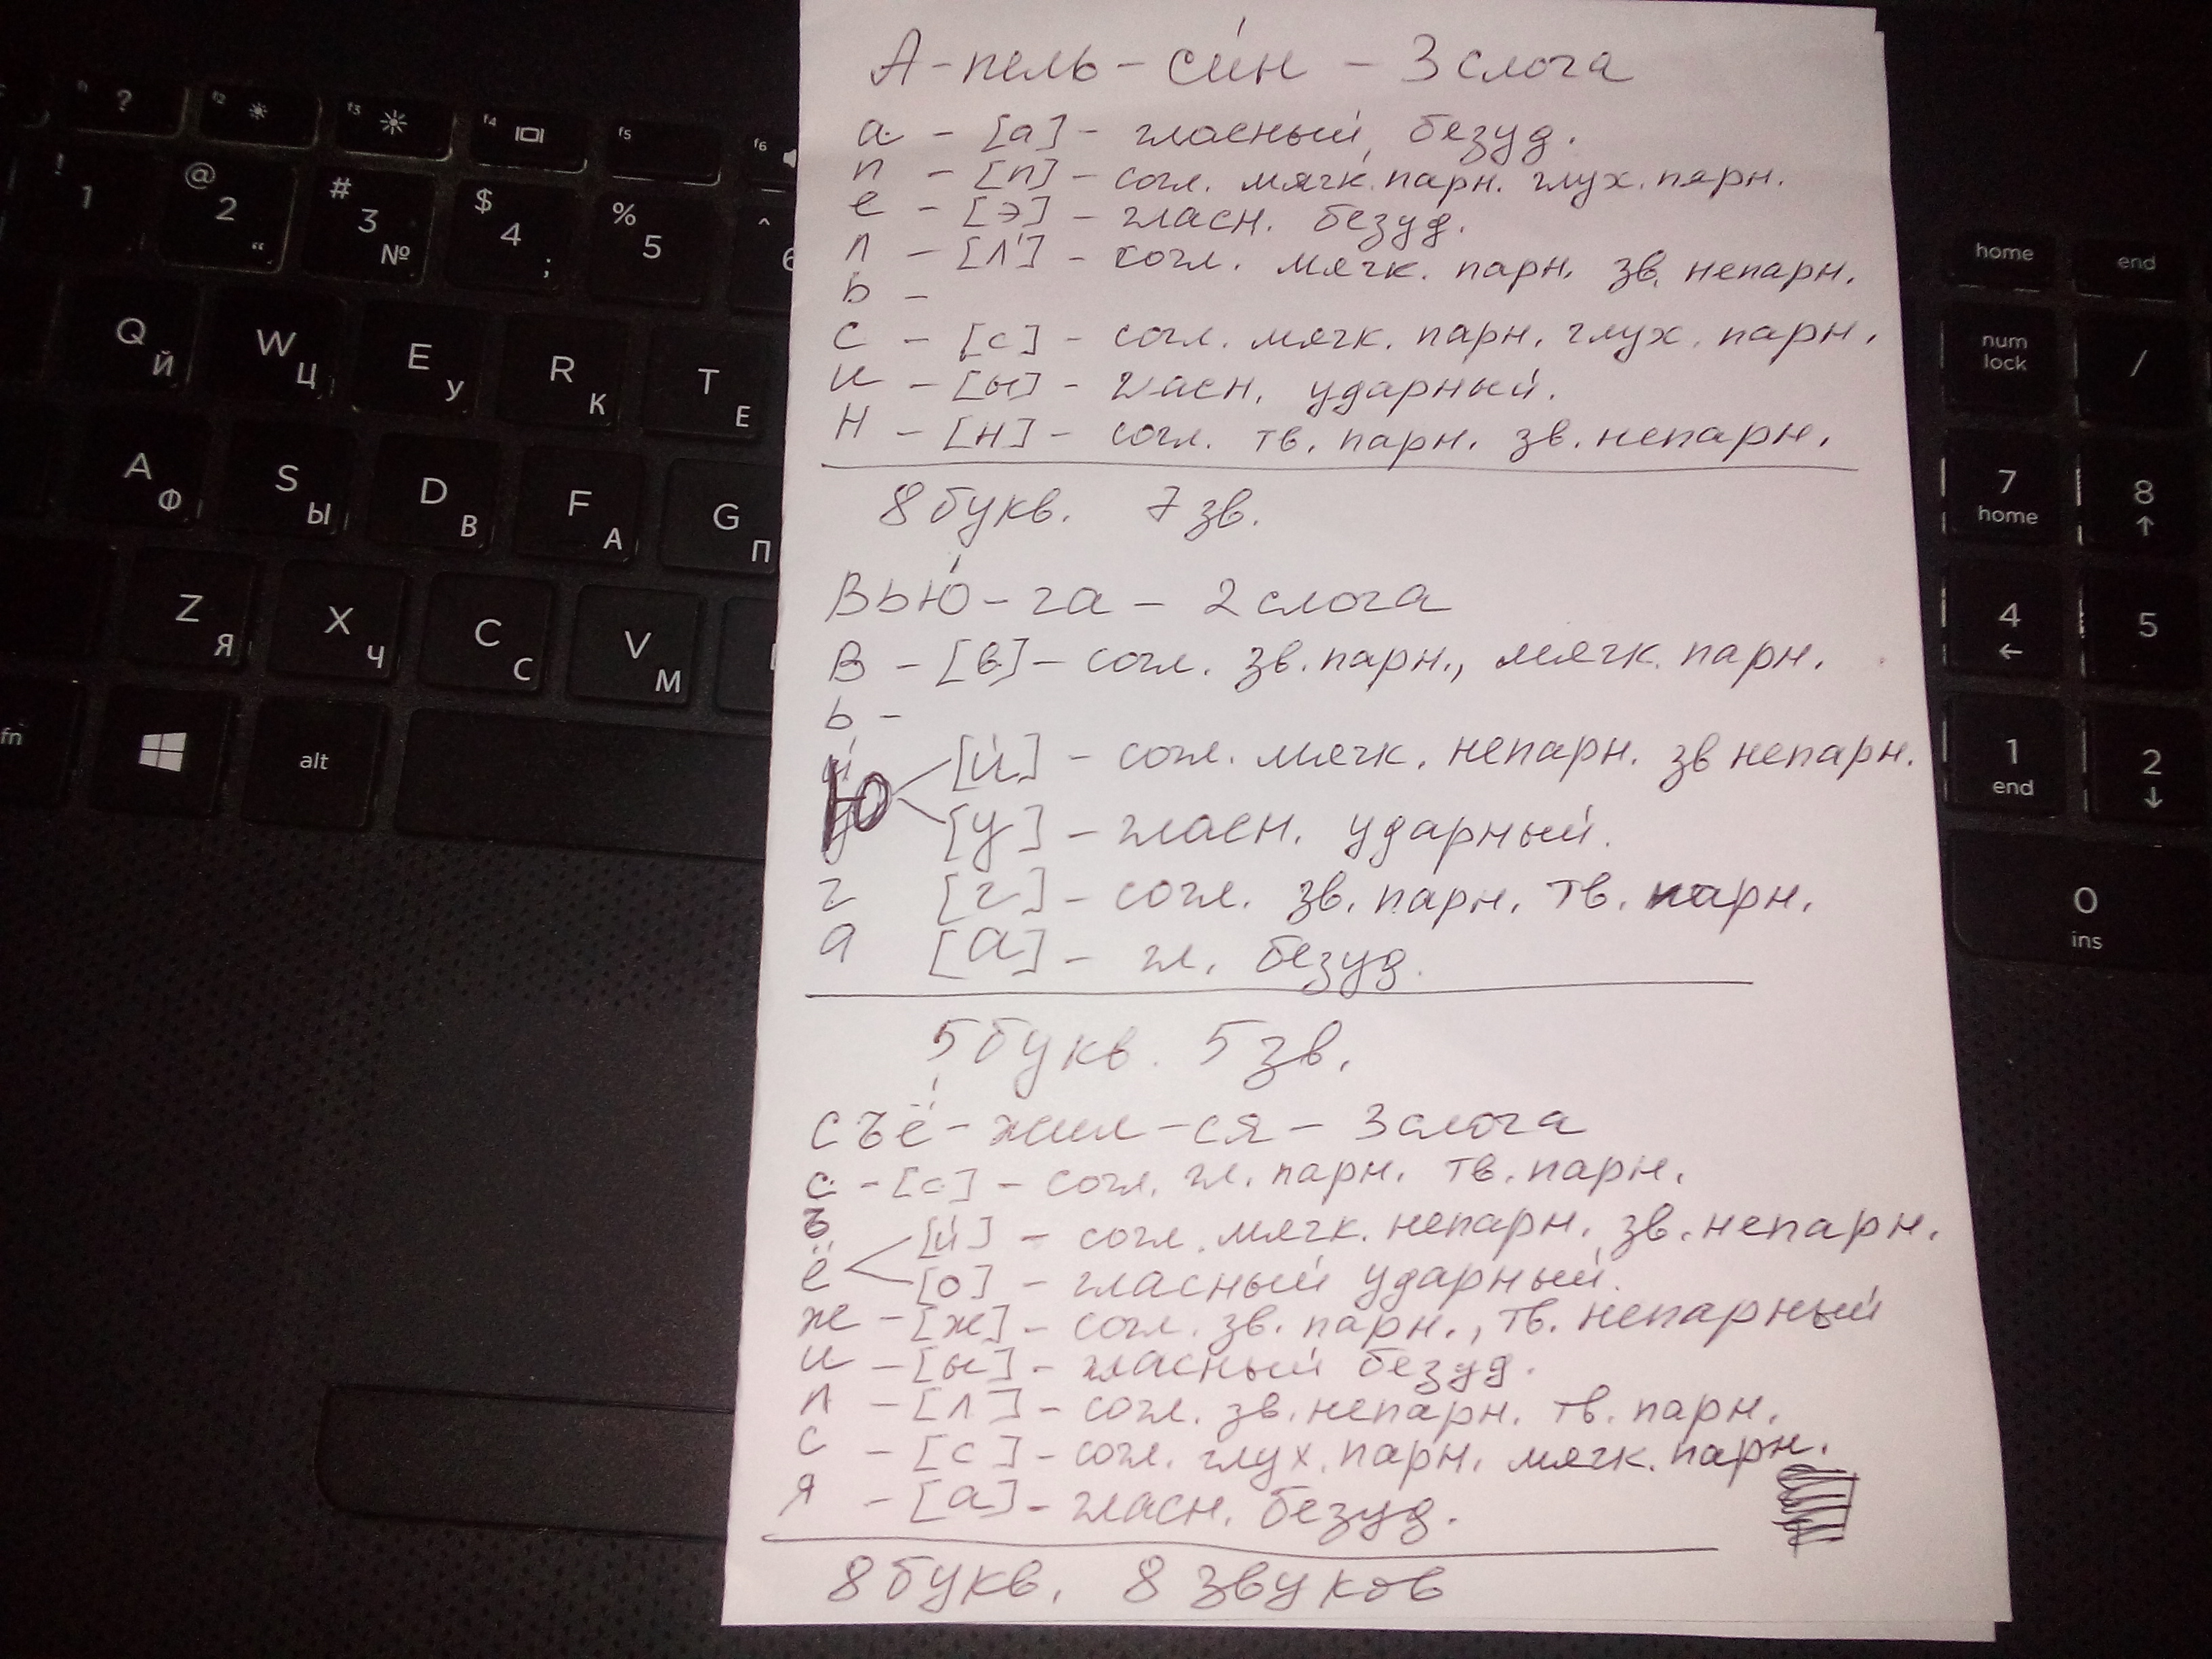 А-пель-си́н - 3 слога
а - [а] - гласный, безуд.
п - [п] - согл. мягк. парн. глух. парн.
е - [э] - гласн. безуд.
л - [л'] - согл. мягк. парн. зв. непарн.
ь -
с - [с] - согл. мягк. парн. глух. парн.
и - [ы] - гласн. ударный.
н - [н] - согл. тв. парн. зв. непарн.
8 букв. 7 зв.
Вью́-га - 2 слога
В - [в] - согл. зв. парн., мягк. парн.
ь -
ю [й] - согл. мягк. непарн. зв непарн.
[у] - гласн. ударный.
г [г] - согл. зв. парн. тв. парн.
а [а] - гл. безуд.
5 букв. 5 зв.
съё-жил-ся - 3 слога
с - [с] - согл. гл. парн. тв. парн.
ъ
ё [й] - согл. мягк. непарн. зв. непарн.
[о] - гласный ударный.
ж - [ж] - согл. зв. парн., тв. непарный
и - [ы] - гласный безуд.
л - [л] - согл. зв. непарн. тв. парн.
с - [с] - согл. глух. парн. мягк. парн.
я - [а] - гласн. безуд.
8 букв. 8 звуков
f2 f3 f4 f5 f6
?
! 1 @ 2 " # 3 № $ 4 ; % 5 ^ 6
Q Й W Ц E У R К T Е
A Ф S Ы D В F А G П
Z Я X Ч C С V М
fn alt
home end
num lock /
7 home 8
4 5
1 end 2
0 ins